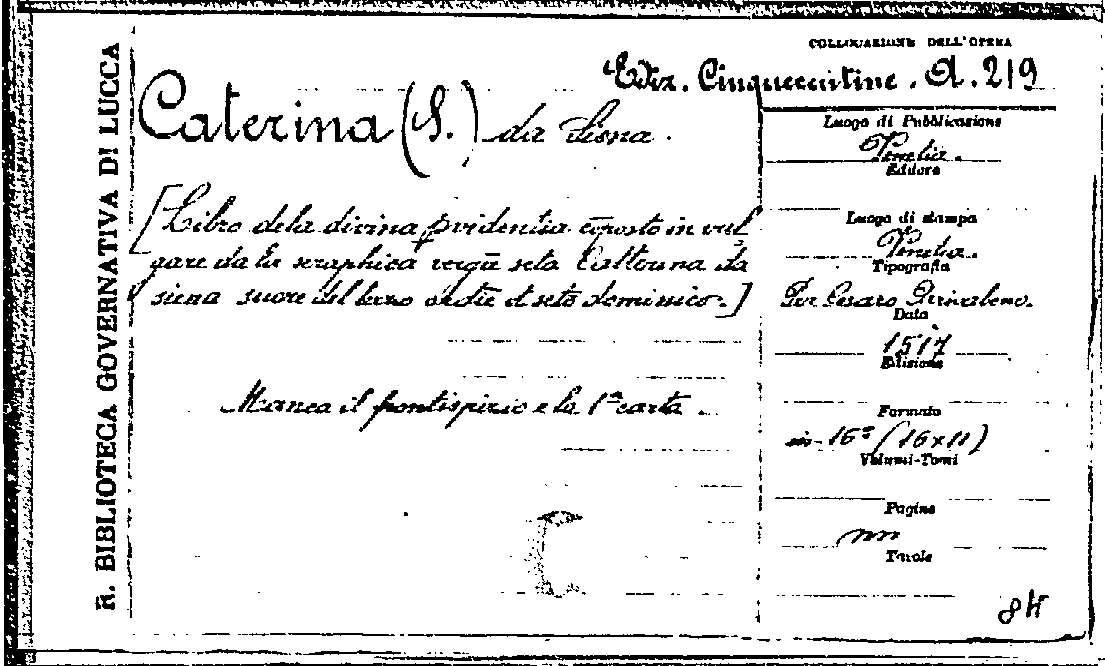 R. BIBLIOTECA GOVERNATIVA DI LUCCA
COLLOCAZIONE DELL'OPERA
Ediz. Cinquecentine. A. 219
Caterina (S.) da Siena.
[Libro dela divina providentia cōposto in vul-
gare da la seraphica vergīe scta
siena suore del terzo ordīe d scto dominico.]
Manca il frontispizio e la 1ª carta.
Luogo di Pubblicazione
Venetia.
Editore
Luogo di stampa
Venetia.
Tipografia
Per Cesaro Arrivabeno.
Data
1517
Edizione
Formato
in-16° (16x11)
Volumi-Tomi
Pagine
nn
Tavole